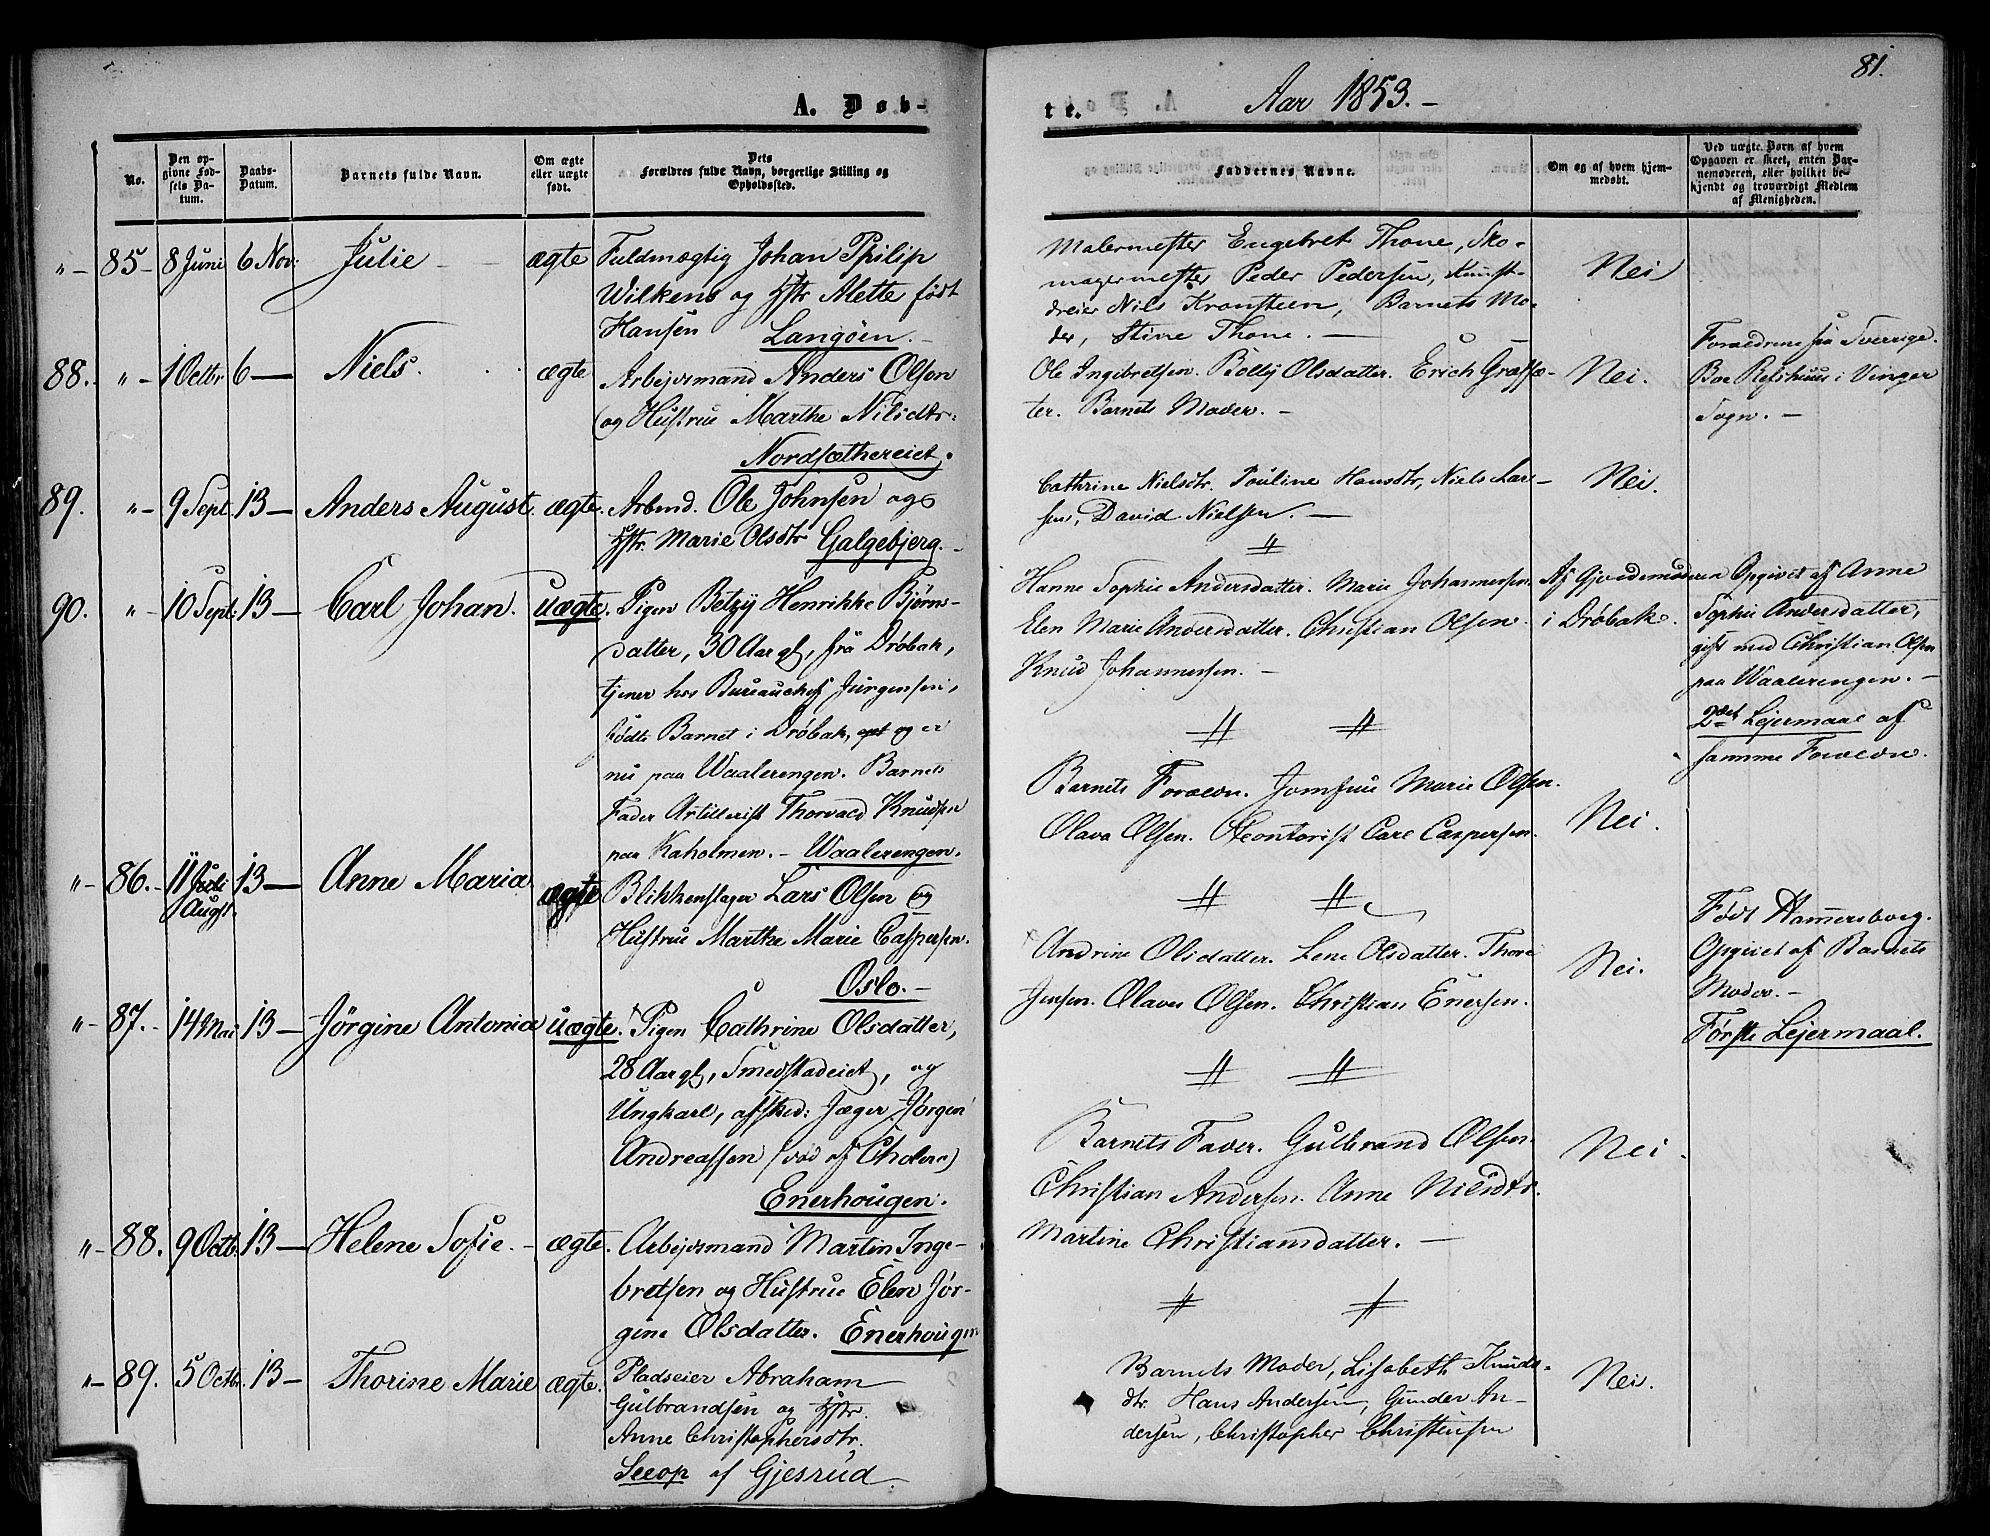 81.
A. Døb-
te.
Aar 1853.-
No.
Den op-
givne Fød-
sels Da-
tum.
Daabs-
Datum.
Barnets fulde Navn.
Om ægte
eller uægte
født.
Dets
Forældres fulde Navn, borgerlige Stilling og
Opholdssted.
Faddernes Navne.
Om og af hvem hjem-
medøbt.
Ved uægte Børn af hvem
Opgaven er skeet, enten Bar-
nemoderen, eller hvilket be-
kjendt og troværdigt Medlem
af Menigheden.
"- 85- 8 Juni 6 Nov: Julie - - ægte Fuldmægtig Johan Philip
Wilkens og Hstr Alette født
Hansen Langøen.-
Malermester Engebret Thone, Sko-
magermester Peder Pedersen, Kunst-
dreier Nils Kronsteen, Barnets Mo-
der, Stine Thone. -
Nei
88. "- 1 Octbr 6 - Niels. ægte Arbejdsmand Anders Olsen
og Hustrue Marthe Nilsdtr.
Nordsæthereiet.
Ole Ingebretsen. Bolly Olsdatter. Erich Græssæ-
ter. Barnets Moder. -
Nei.
Forældrene fra Sverrige.
Boe Refshuus i Vinger
Sogn. -
89. "- 9 Sept. 13- Anders August. ægte. Arbmd. Ole Johnsen og
Hstr. Marie Olsdtr Galgebjerg.-
Cathrine Nielsdtr. Pauline Hansdtr, Niels Lar-
sen, David Nielsen. -
Nei.
90. "- 10 Sept: 13- Carl Johan. uægte. Pigen Betzy Henrikke Bjørns-
datter, 30 Aar gl, fra Drøbak,
tjener hos Bureauchef Jürgensen,
fødte Barnet i Drøbak, og er
nu paa Waalerengen. Barnets
Fader Artillerist Thorvald Knudsen
paa Kaholmen. - Waalerengen.
Hanne Sophie Andersdatter. Marie Johannersen.
Elen Marie Andersdatter. Christian Olsen.
Knud Johannersen. -
Af Gjordemoderen
i Drøbak.
Opgivet af Anne
Sophie Andersdatter,
gift med Christian Olsen
paa Waalerengen. -
2det Lejermaal af
samme Foræedre.
"- 86.- 11 Juli 13- Anne Maria. ægte Blikkenslager Lars Olsen og
Augst.
Hustrue Marthe Marie Caspersen.
Oslo. -
Barnets Foræedre. Jomfrue Marie Olsen.
Olava Olsen. Contorist Carl Caspersen.
Nei.
"- 87.- 14 Mai 13- Jørgine Antonia uægte. Pigen Cathrine Olsdatter,
28 Aar gl, Smedstadeiet, og
Ungkarl, afsked: Jæger Jørgen
Andreassen (død af Cholera)
Enerhougen.
Andrine Olsdatter. Lene Olsdatter. Thore
Jensen. Olaves Olsen. Christian Enersen.
Nei.
Født Hammersborg.
Opgivet af Barnets
Moder. -
Første Lejermaal.
"- 88. 9 Octb. 13- Helene Sofie.- ægte. Arbejdsmand Martin Inge-
bretsen og Hustrue Elen Jør-
gine Olsdatter. Enerhougen
Barnets Fader. Gulbrand Olsen.
Christian Andersen. Anne Nielsdtr.
Martine Christiansdatter. -
Nei.
"- 89. 5 Octb. 13- Thorine Marie ægte. Pladseier Abraham
Gulbrandsen og Hstr.
Anne Christophersdtr.
Sloop af Gjesrud.
Barnets Moder, Lisabeth Knuds-
dtr. Hans Andersen, Gunder An-
dersen, Christopher Christensen
Nei.